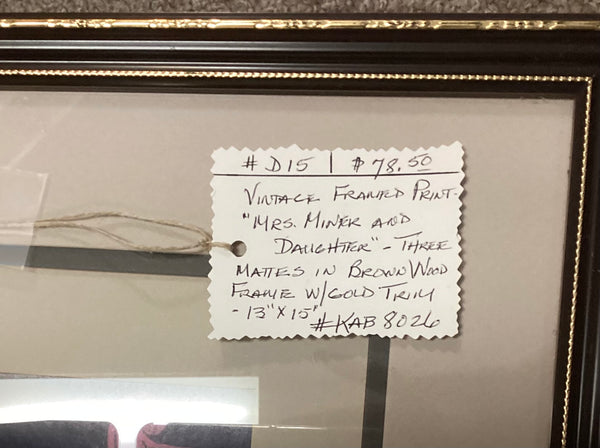 #D15 | $78.50
VINTAGE FRAMED PRINT-
"MRS. MINER AND
DAUGHTER" - THREE
MATTES IN BROWN WOOD
FRAME W/GOLD TRIM
- 13" X 15"
#KAB 8026